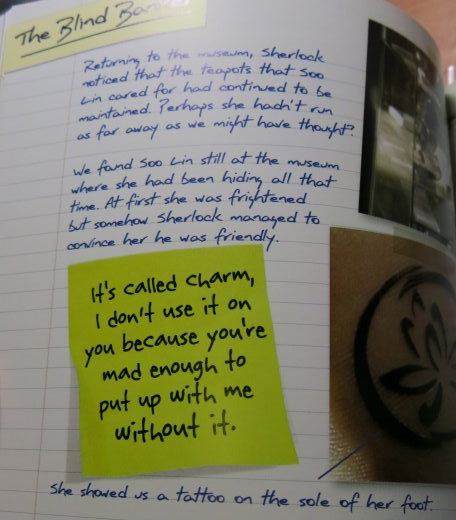 The Blind Banker
Returning to the museum, Sherlock
noticed that the teapots that Soo
Lin cared for had continued to be
maintained. Perhaps she hadn't run
as far away as we might have thought?
We found Soo Lin still at the museum
where she had been hiding all that
time. At first she was frightened
but somehow Sherlock managed to
convince her he was friendly.
It's called charm,
I don't use it on
you because you're
mad enough to
put up with me
without it.
She showed us a tattoo on the sole of her foot.